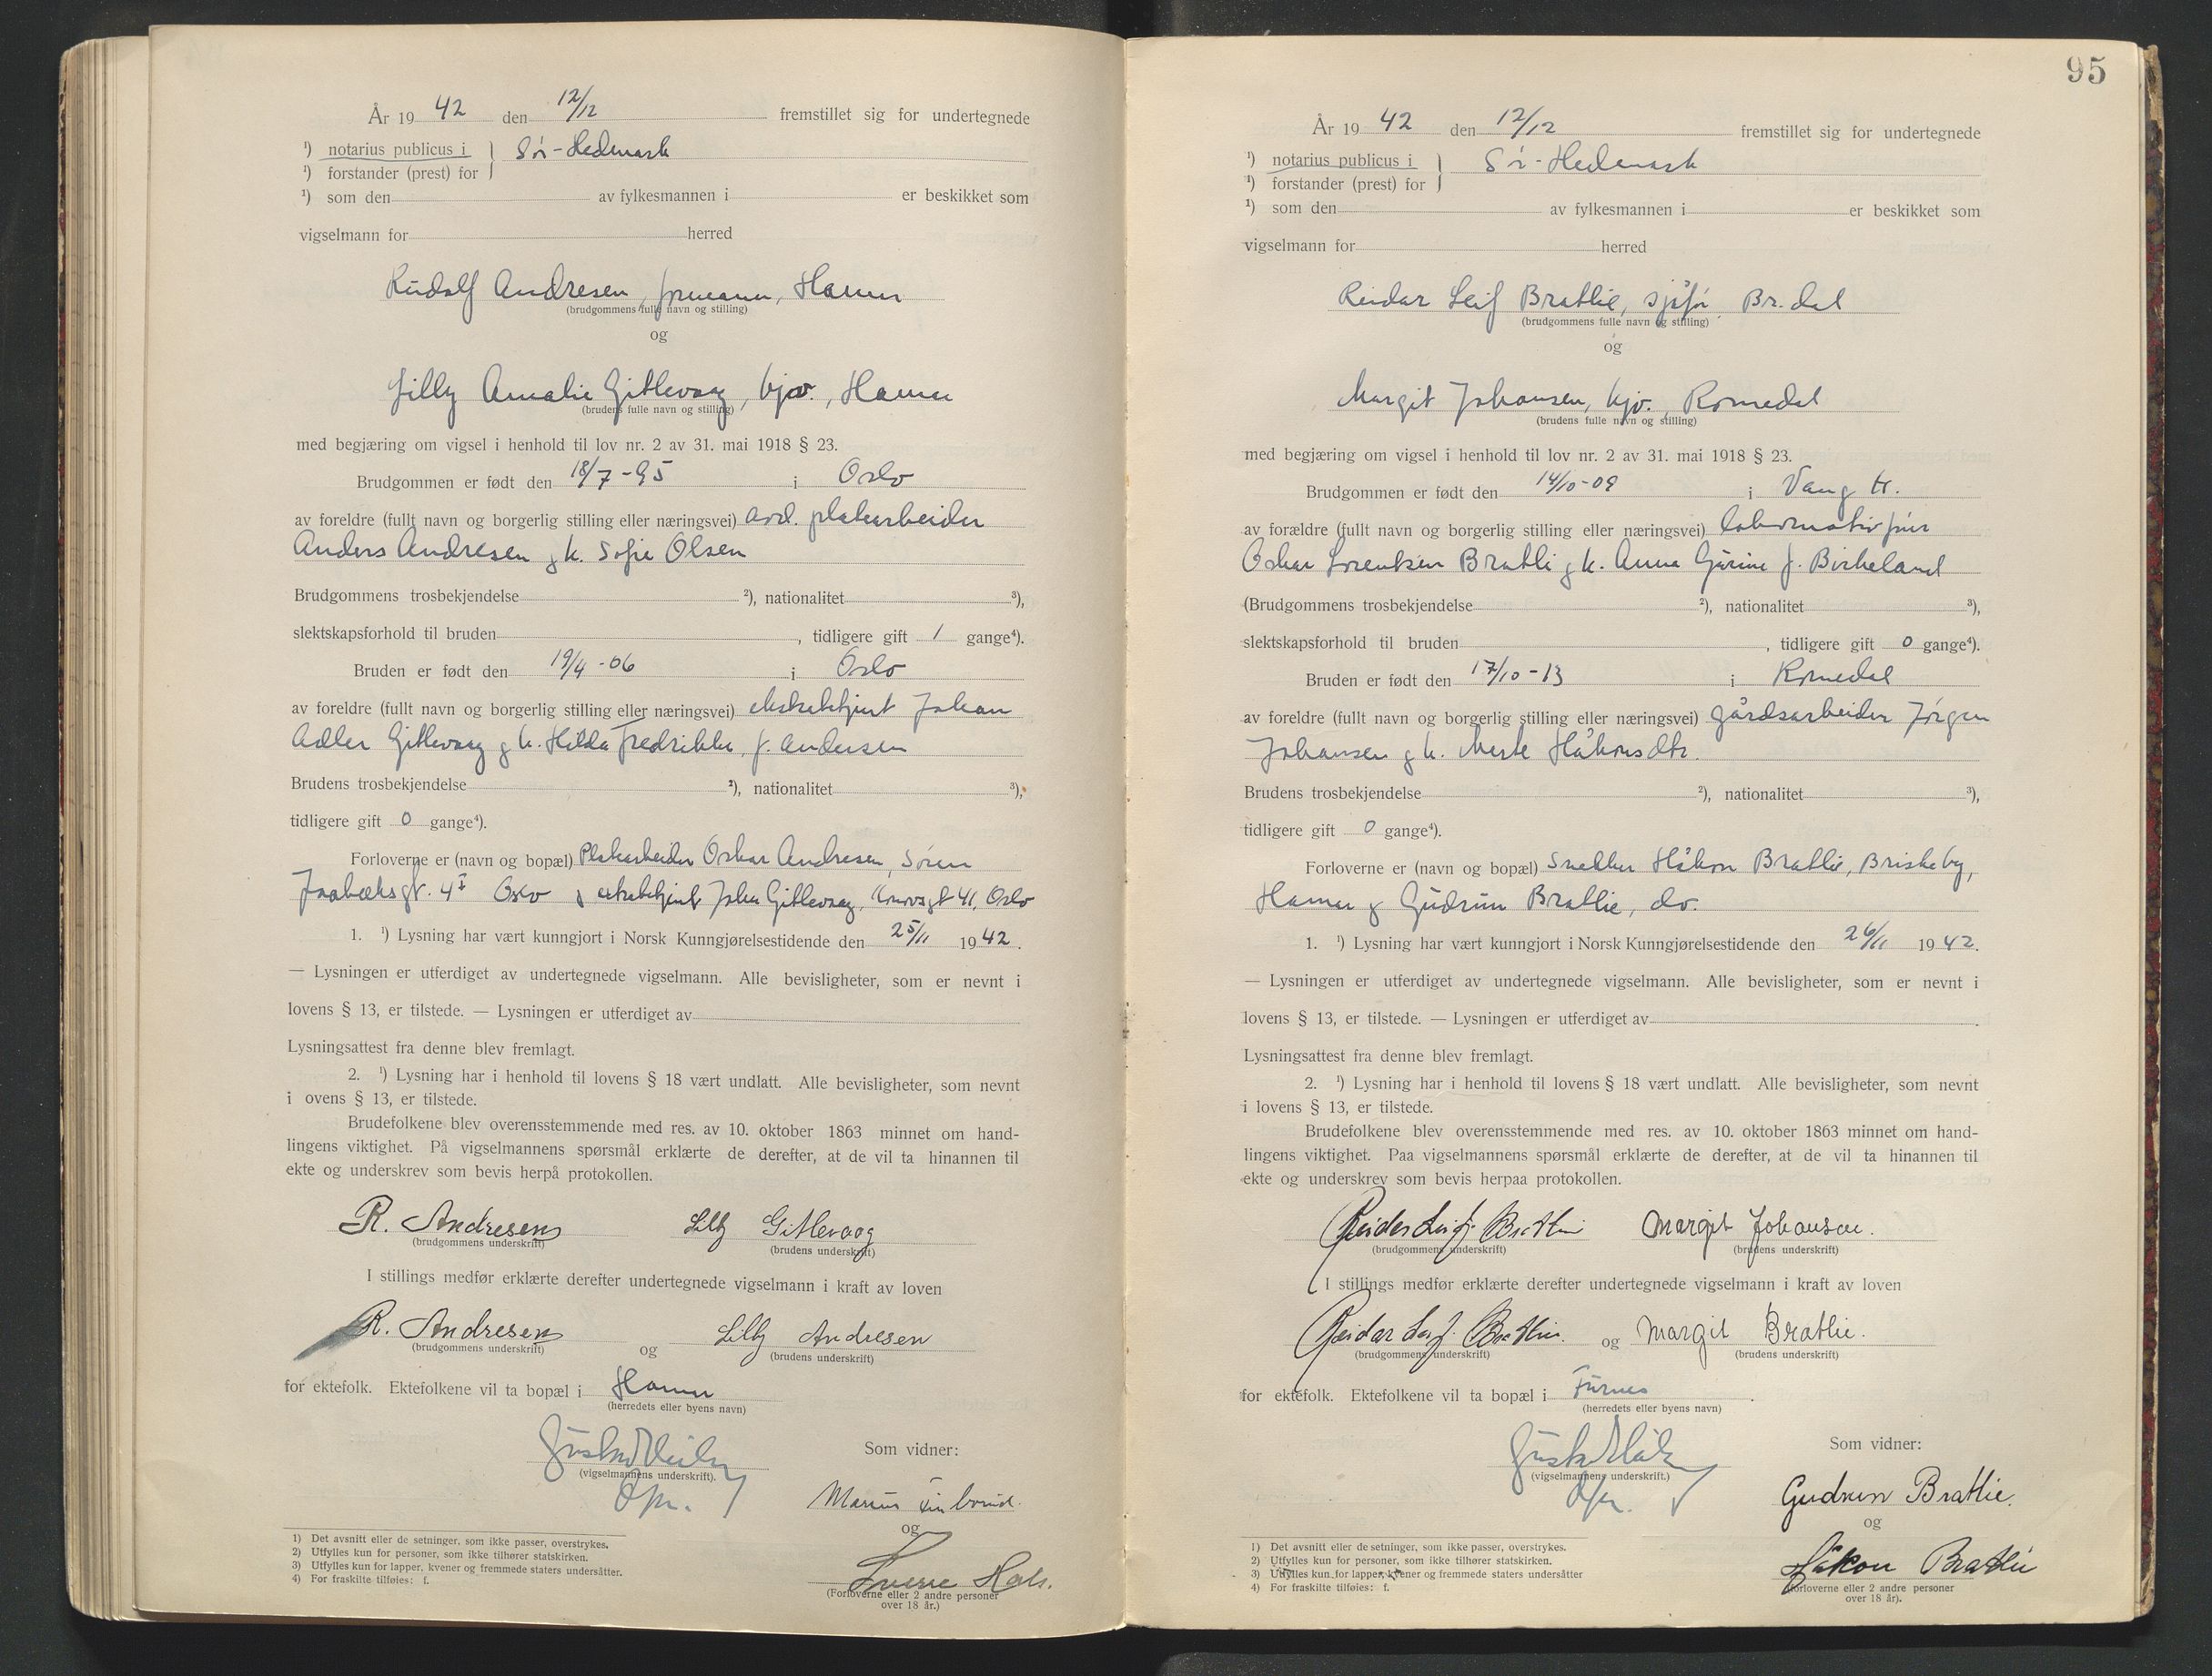 År 19 42 den 12/12 fremstillet sig for undertegnede
¹) notarius publicus i } Sør-Hedmark
¹) forstander (prest) for
¹) som den av fylkesmannen i er beskikket som
vigselmann for herred
Rudolf Andresen, formann, Hamar
(brudgommens fulle navn og stilling)
og
Lilly Amalie Gitlevaag, hjv., Hamar
(brudens fulle navn og stilling)
med begjæring om vigsel i henhold til lov nr. 2 av 31. mai 1918 § 23.
Brudgommen er født den 18/7-95 i Oslo
av foreldre (fullt navn og borgerlig stilling eller næringsvei) avd. platearbeider
Anders Andresen og h. Sofie Olsen
Brudgommens trosbekjendelse ²), nationalitet ³),
slektskapsforhold til bruden , tidligere gift 1 gange⁴).
Bruden er født den 19/4-06 i Oslo
av foreldre (fullt navn og borgerlig stilling eller næringsvei) ekstrabetjent Johan
Adler Gitlevaag og h. Hilda Fredrikke, f. Andersen
Brudens trosbekjendelse ²), nationalitet ³),
tidligere gift 0 gange⁴).
Forloverne er (navn og bopæl) Platearbeider Oskar Andresen, Søren
Jaabæksgt. 4 I Oslo og ekstrabetjent Johan Gitlevaag, 41, Oslo
1. ¹) Lysning har vært kunngjort i Norsk Kunngjørelsestidende den 25/11 1942.
— Lysningen er utferdiget av undertegnede vigselmann. Alle bevisligheter, som er nevnt i
lovens § 13, er tilstede. — Lysningen er utferdiget av
Lysningsattest fra denne blev fremlagt.
2. ¹) Lysning har i henhold til lovens § 18 vært undlatt. Alle bevisligheter, som nevnt
i ovens § 13, er tilstede.
Brudefolkene blev overensstemmende med res. av 10. oktober 1863 minnet om hand-
lingens viktighet. På vigselmannens spørsmål erklærte de derefter, at de vil ta hinannen til
ekte og underskrev som bevis herpå protokollen.
R. Andresen Lilly Gitlevaag
(brudgommens underskrift) (brudens underskrift)
I stillings medfør erklærte derefter undertegnede vigselmann i kraft av loven
R. Andresen og Lilly Andresen
(brudgommens underskrift) (brudens underskrift)
for ektefolk. Ektefolkene vil ta bopæl i Hamar
(herredets eller byens navn)
Som vidner:
(vigselmannens underskrift).
Marius
og
Sverre
(Forloverne eller 2 andre personer
over 18 år.)
1) Det avsnitt eller de setninger, som ikke passer, overstrykes.
2) Utfylles kun for personer, som ikke tilhører statskirken.
3) Utfylles kun for lapper, kvener og fremmede staters undersåtter.
4) For fraskilte tilføies: f.
95
År 19 42 den 12/12 fremstillet sig for undertegnede
¹) notarius publicus i } Sør-Hedmark
¹) forstander (prest) for
¹) som den av fylkesmannen i er beskikket som
vigselmann for herred
Reidar Leif Bratlie, sjåfør, Br.dal
(brudgommens fulle navn og stilling)
og
Margit Johansen, hjv., Romedal
(brudens fulle navn og stilling)
med begjæring om vigsel i henhold til lov nr. 2 av 31. mai 1918 § 23.
Brudgommen er født den 14/10-09 i Vang H.
av forældre (fullt navn og borgerlig stilling eller næringsvei) lokomotivfører
Oskar Lorentsen Bratli og h. Anna Gurine f. Birkeland
(Brudgommens trosbekjendelse ²), nationalitet ³),
slektskapsforhold til bruden , tidligere gift 0 gange⁴).
Bruden er født den 17/10-13 i Romedal
av foreldre (fullt navn og borgerlig stilling eller næringsvei) gårdsarbeider Jørgen
Johansen og h. Marte Håkonsdtr.
Brudens trosbekjendelse ²), nationalitet ³),
tidligere gift 0 gange⁴).
Forloverne er (navn og bopæl) Snekker Håkon Bratlie, Briskeby,
Hamar og Gudrun Bratlie, do.
1. ¹) Lysning har vært kunngjort i Norsk Kunngjørelsestidende den 26/11 1942.
— Lysningen er utferdiget av undertegnede vigselmann. Alle bevisligheter, som er nevnt i
lovens § 13, er tilstede. — Lysningen er utferdiget av
Lysningsattest fra denne blev fremlagt.
2. ¹) Lysning har i henhold til lovens § 18 vært undlatt. Alle bevisligheter, som nevnt
i lovens § 13, er tilstede.
Brudefolkene blev overensstemmende med res. av 10. oktober 1863 minnet om hand-
lingens viktighet. Paa vigselmannens spørsmål erklærte de derefter, at de vil ta hinannen til
ekte og underskrev som bevis herpaa protokollen.
Reidar Leif Bratlie Margit Johansen.
(brudgommens underskrift) (brudens underskrift)
I stillings medfør erklærte derefter undertegnede vigselmann i kraft av loven
Reidar Leif Bratlie. og Margit Bratlie.
(brudgommens underskrift) (brudens underskrift)
for ektefolk. Ektefolkene vil ta bopæl i Furnes
(herredets eller byens navn)
Som vidner:
(vigselmannens underskrift.)
Gudrun Bratlie.
og
Håkon Bratlie
(Forloverne eller 2 andre personer
over 18 år).
1) Det avsnitt eller de setninger, som ikke passer, overstrykes.
2) Utfylles kun for personer, som ikke tilhører statskirken.
3) Utfylles kun for lapper, kvener og fremmede staters undersåtter
4) For fraskilte tilføies: f.